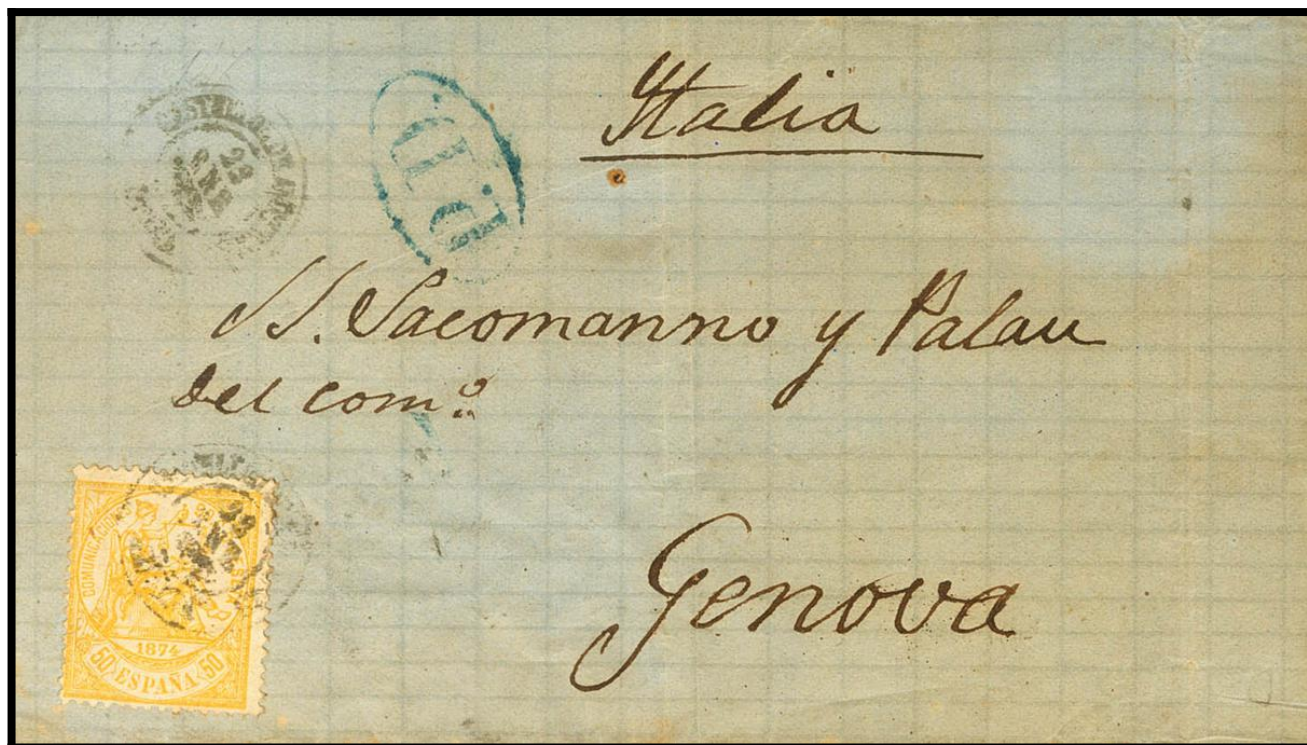 Italia
P.D.
SS. Sacomanno y Palau
del com.º
Genova
22
ENE
COMUNICACIONES
1874
50 ESPAÑA 50